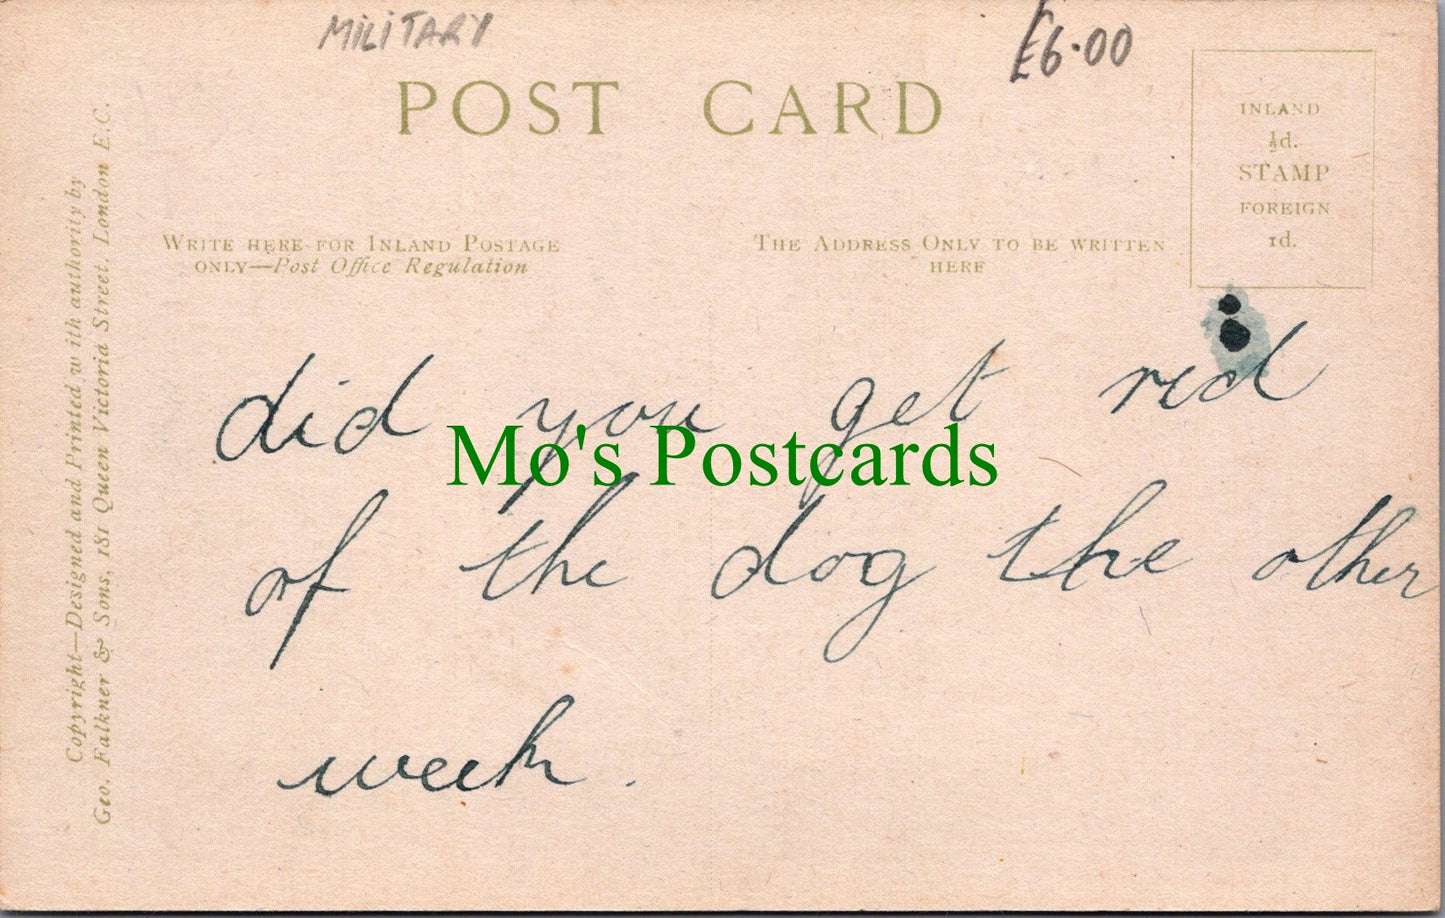 MILITARY
£6.00
POST CARD
INLAND
½d.
STAMP
FOREIGN
1d.
WRITE HERE FOR INLAND POSTAGE
ONLY—Post Office Regulation
THE ADDRESS ONLY TO BE WRITTEN
HERE
Copyright—Designed and Printed with authority by
Geo. Falkner & Sons, 181 Queen Victoria Street, London E.C.
did you get rid
Mo's Postcards
of the dog the other
week.